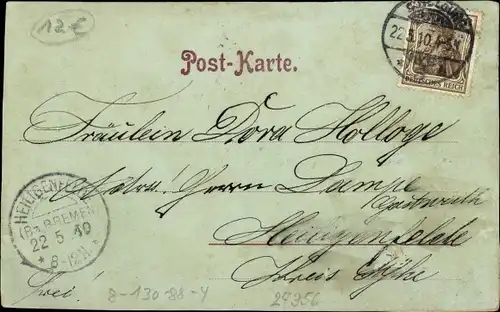 12€
22.5.10.
DEUTSCHES REICH
Post-Karte.
Fräulein Dora Holloge
Herrn Lampe
Gastwirth
HEILIGENFELDE
(Bz. BREMEN)
22 5 10
Heiligenfelde
Kreis Syke
frei!
8-130-88-4
24356